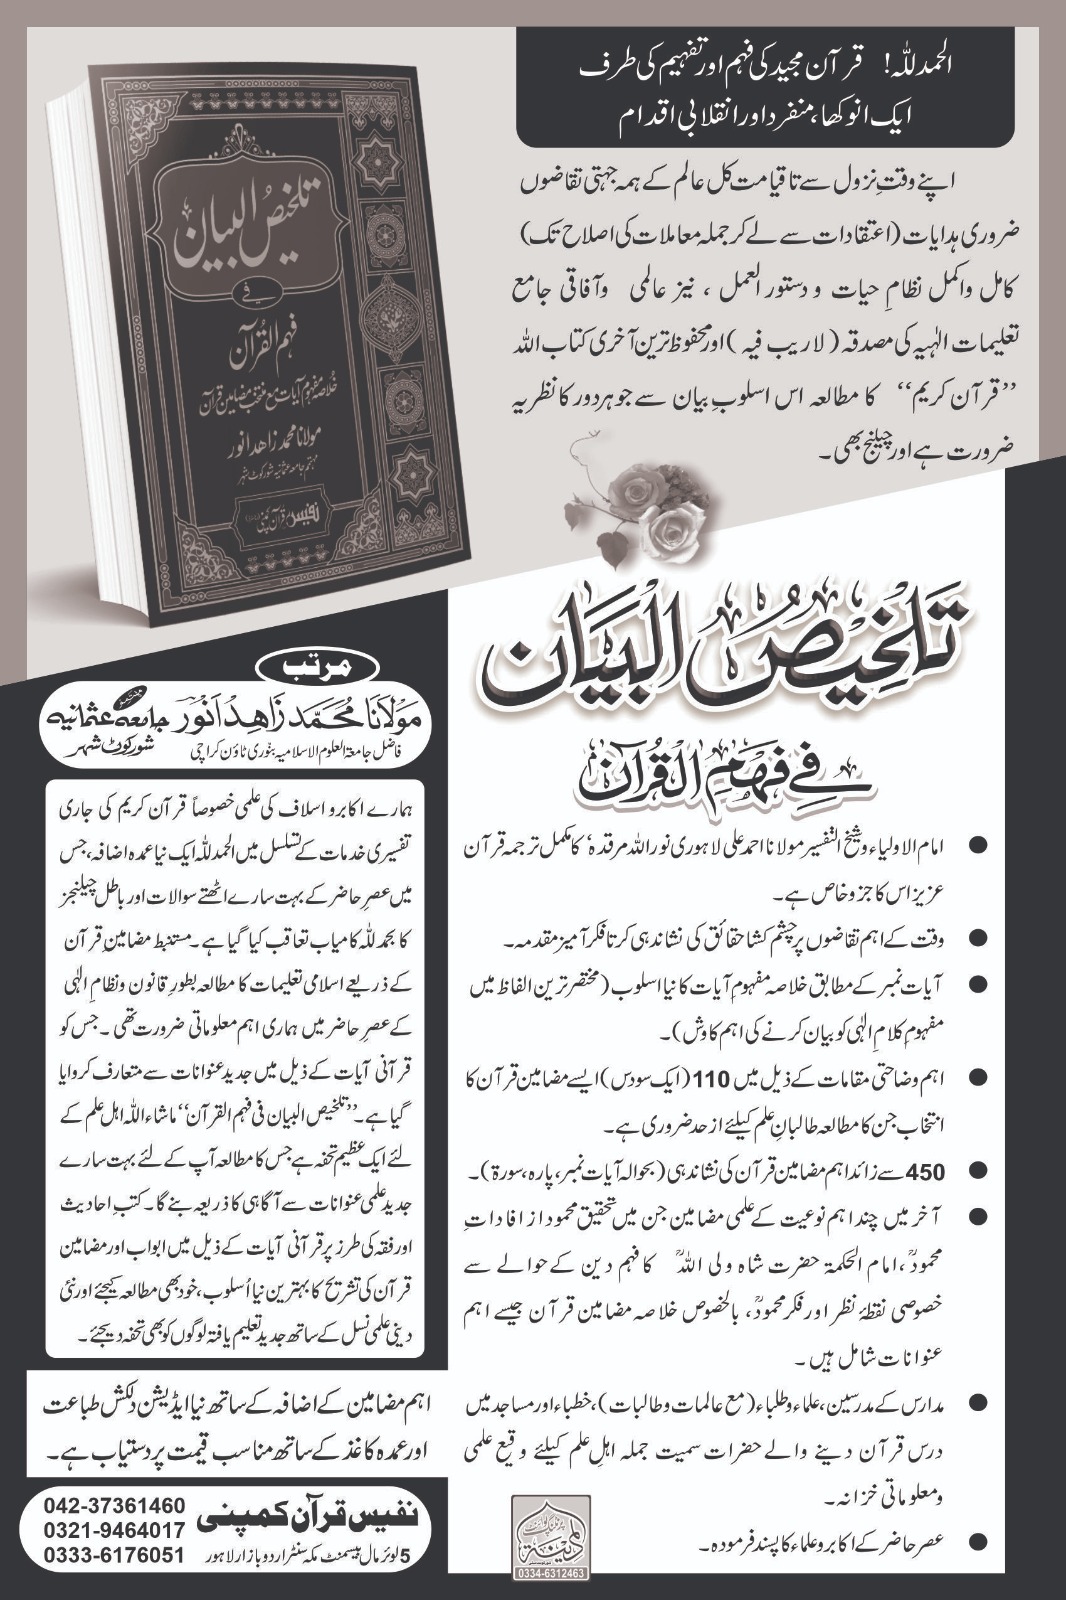 الحمدللہ! قرآن مجید کی فہم اور تفہیم کی طرف
ایک انوکھا، منفرد اور انقلابی اقدام
اپنے وقتِ نزول سے تا قیامت کل عالم کے ہمہ جہتی تقاضوں
ضروری ہدایات (اعتقادات سے لے کر جملہ معاملات کی اصلاح تک)
کامل واکمل نظامِ حیات و دستور العمل ، نیز عالمی وآفاقی جامع
تعلیمات الٰہیہ کی مصدقہ (لاریب فیہ) اور محفوظ ترین آخری کتاب اللہ
’’قرآن کریم‘‘ کا مطالعہ اس اسلوبِ بیان سے جو ہر دور کا نظریہ
ضرورت ہے اور چیلنج بھی۔
تلخیص البیان
فی
فہم القرآن
خلاصہ مفہومِ آیات مع منتخب مضامین قرآن
مولانا محمد زاھد انور
مہتمم جامعہ عثمانیہ شورکوٹ شہر
نفیس قرآن کمپنی
تَلخِیصُ البَیَان
فِی فَہمِ القُرآن
● امام الاولیاء و شیخ التفسیر مولانا احمد علی لاہوری نور اللہ مرقدہٗ کا مکمل ترجمہ قرآن
عزیز اس کا جزوِ خاص ہے۔
● وقت کے اہم تقاضوں پر چشم کشا حقائق کی نشاندہی کرتا فکر آمیز مقدمہ۔
● آیات نمبر کے مطابق خلاصہ مفہومِ آیات کا نیا اسلوب (مختصر ترین الفاظ میں
مفہومِ کلامِ الٰہی کو بیان کرنے کی اہم کاوش)۔
● اہم وضاحتی مقامات کے ذیل میں 110 (ایک سو دس) ایسے مضامین قرآن کا
انتخاب جن کا مطالعہ طالبانِ علم کیلئے ازحد ضروری ہے۔
● 450 سے زائد اہم مضامین قرآن کی نشاندہی (بحوالہ آیات نمبر، پارہ، سورۃ)۔
● آخر میں چند اہم نوعیت کے علمی مضامین جن میں تحقیق محمود از افاداتِ
محمودؒ، امام الحکمۃ حضرت شاہ ولی اللہؒ کا فہم دین کے حوالے سے
خصوصی نقطۂ نظر اور فکر محمودؒ، بالخصوص خلاصہ مضامین قرآن جیسے اہم
عنوانات شامل ہیں۔
● مدارس کے مدرسین، علماء وطلباء (مع عالمات و طالبات)، خطباء اور مساجد میں
درس قرآن دینے والے حضرات سمیت جملہ اہلِ علم کیلئے وقیع علمی
ومعلوماتی خزانہ۔
● عصر حاضر کے اکابر و علماء کا پسند فرمودہ۔
مرتب
مَولانا مُحَمَّد زاھِد انور مہتمم جامعہ عثمانیہ
فاضل جامعۃ العلوم الاسلامیہ بنّوری ٹاؤن کراچی شورکوٹ شہر
ہمارے اکابر و اسلاف کی علمی خصوصاً قرآن کریم کی جاری
تفسیری خدمات کے تسلسل میں الحمدللہ ایک نیا عمدہ اضافہ، جس
میں عصرِ حاضر کے بہت سارے اٹھتے سوالات اور باطل چیلنجز
کا بحمدللہ کامیاب تعاقب کیا گیا ہے۔ مستنبط مضامینِ قرآن
کے ذریعے اسلامی تعلیمات کا مطالعہ بطورِ قانون ونظامِ الٰہی
کے عصرِ حاضر میں ہماری اہم معلوماتی ضرورت تھی۔ جس کو
قرآنی آیات کے ذیل میں جدید عنوانات سے متعارف کروایا
گیا ہے۔ ’’تلخیص البیان فی فہم القرآن‘‘ ماشاء اللہ اہل علم کے
لئے ایک عظیم تحفہ ہے جس کا مطالعہ آپ کے لئے بہت سارے
جدید علمی عنوانات سے آگاہی کا ذریعہ بنے گا۔ کتب احادیث
اور فقہ کی طرز پر قرآنی آیات کے ذیل میں ابواب اور مضامین
قرآن کی تشریح کا بہترین نیا اُسلوب، خود بھی مطالعہ کیجئے اور نئی
دینی علمی نسل کے ساتھ جدید تعلیم یافتہ لوگوں کو بھی تحفہ دیجئے۔
اہم مضامین کے اضافہ کے ساتھ نیا ایڈیشن دلکش طباعت
اور عمدہ کاغذ کے ساتھ مناسب قیمت پر دستیاب ہے۔
نفیس قرآن کمپنی
5 لوئر مال بیسمنٹ مکہ سنٹر اردو بازار لاہور
042-37361460
0321-9464017
0333-6176051
المدینہ
0334-6312463